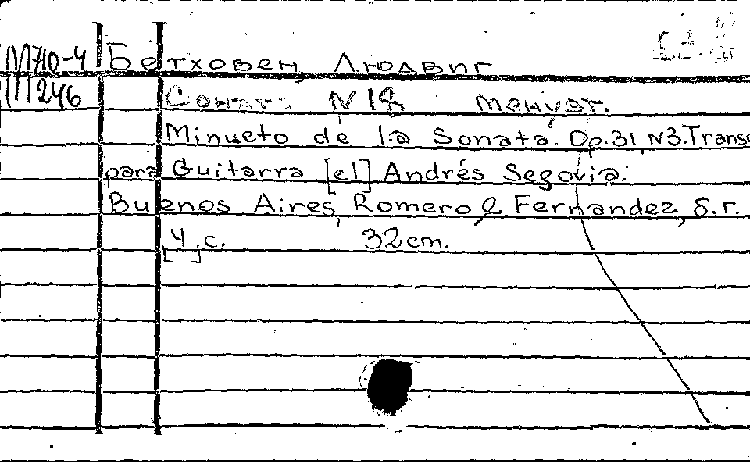 М710-4 Бетховен, Людвиг
М246
Соната N 18 менуэт.
Minueto de la Sonata. Op.31, N3. Transc
para Guitarra [el] Andrés Segovia.
Buenos Aires, Romero & Fernandez, s.r.
[4] c. 32 cm.